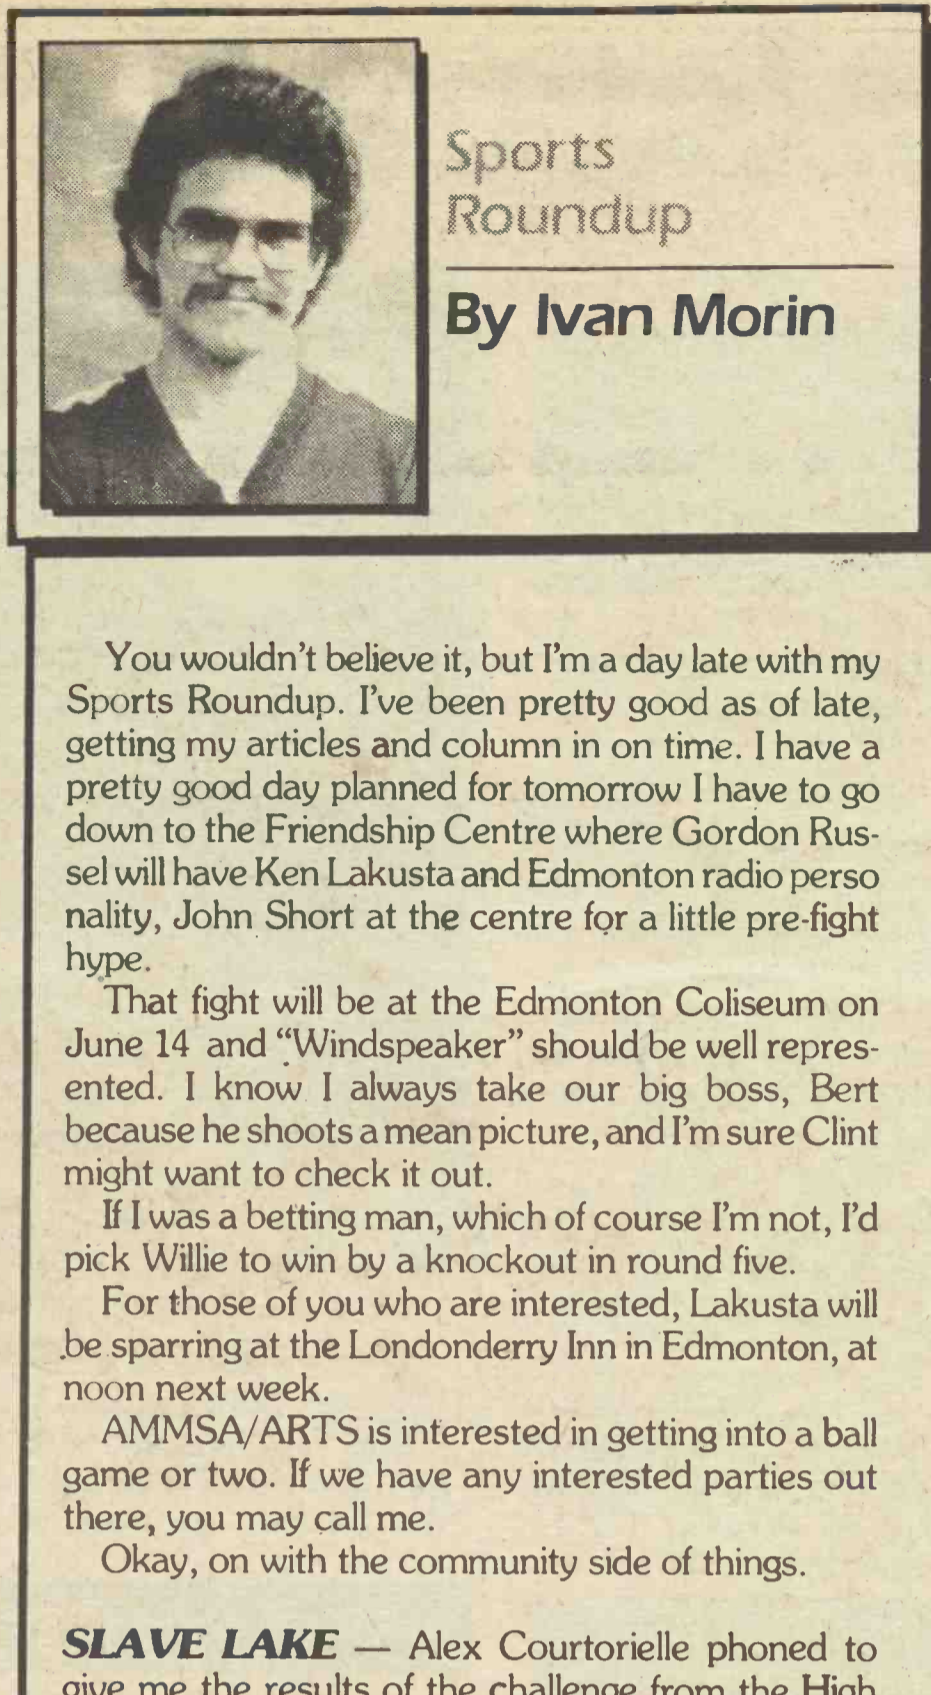 Sports
Roundup
By Ivan Morin
You wouldn't believe it, but I'm a day late with my
Sports Roundup. I've been pretty good as of late,
getting my articles and column in on time. I have a
pretty good day planned for tomorrow I have to go
down to the Friendship Centre where Gordon Rus-
sel will have Ken Lakusta and Edmonton radio perso
nality, John Short at the centre for a little pre-fight
hype.
That fight will be at the Edmonton Coliseum on
June 14 and “Windspeaker” should be well repres-
ented. I know I always take our big boss, Bert
because he shoots a mean picture, and I'm sure Clint
might want to check it out.
If I was a betting man, which of course I'm not, I'd
pick Willie to win by a knockout in round five.
For those of you who are interested, Lakusta will
be sparring at the Londonderry Inn in Edmonton, at
noon next week.
AMMSA/ARTS is interested in getting into a ball
game or two. If we have any interested parties out
there, you may call me.
Okay, on with the community side of things.
SLAVE LAKE — Alex Courtorielle phoned to
give me the results of the challenge from the High